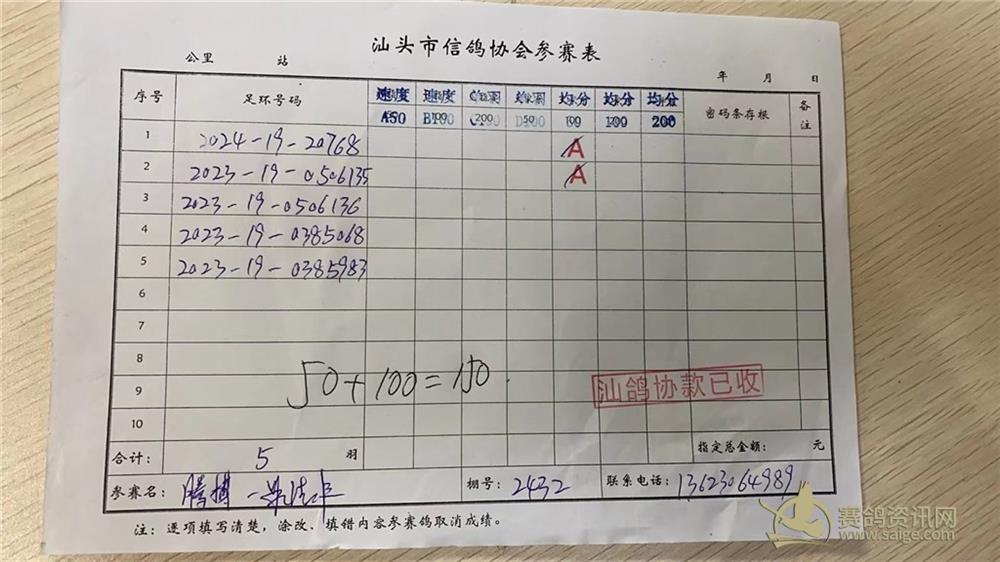 汕头市信鸽协会参赛表
公里 站 年 月 日
序号 足环号码 速度 速度 均分 均分 均分 密码条存根 备注
A50 100 200 50 100 200
1 2024-19-20768 A
2 2023-19-0506135 A
3 2023-19-0506136
4 2023-19-0385068
5 2023-19-0385983
6
7
8
50+100=150.
9 汕鸽协款已收
10
合计: 5 羽 指定总金额: 元
参赛名: 腾搏 棚号: 2432 联系电话: 13623064989
注: 逐项填写清楚, 涂改、填错内容参赛鸽取消成绩。
赛鸽资讯网
www.saige.com